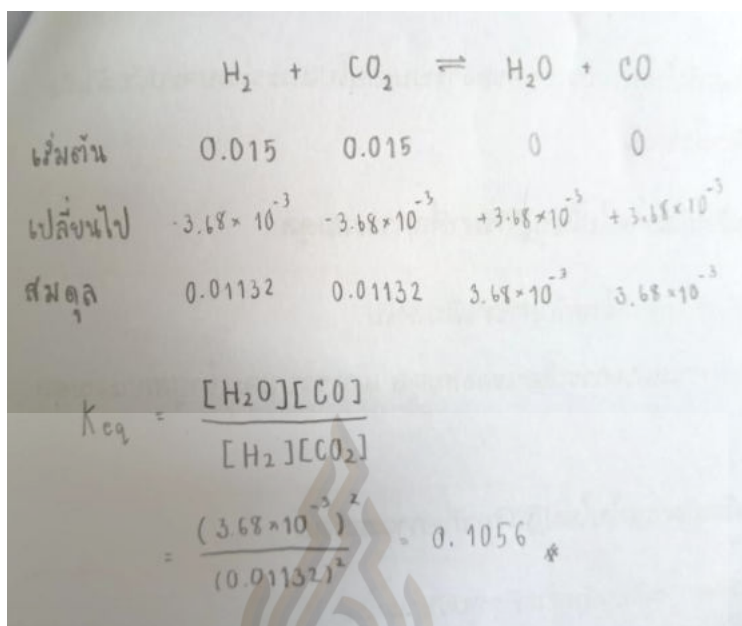 H₂ + CO₂ ⇌ H₂O + CO
เริ่มต้น 0.015 0.015 0 0
เปลี่ยนไป -3.68 × 10⁻³ -3.68 × 10⁻³ +3.68 × 10⁻³ +3.68 × 10⁻³
สมดุล 0.01132 0.01132 3.68 × 10⁻³ 3.68 × 10⁻³
Keq = [H₂O][CO] / [H₂][CO₂]
= (3.68 × 10⁻³)² / (0.01132)² = 0.1056 *